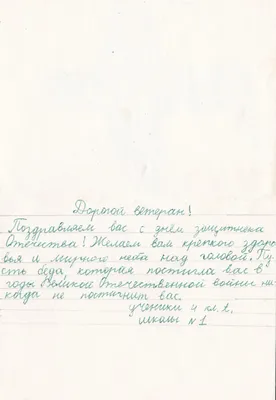 Дорогой ветеран!
Поздравляем вас с днём защитника
Отечества! Желаем вам крепкого здоро
вья и мирного неба над головой. Пу
сть беда, которая постигла вас в
годы Великой Отечественной войны ни
когда не постигнит вас.
ученики 4 кл.
школы №1